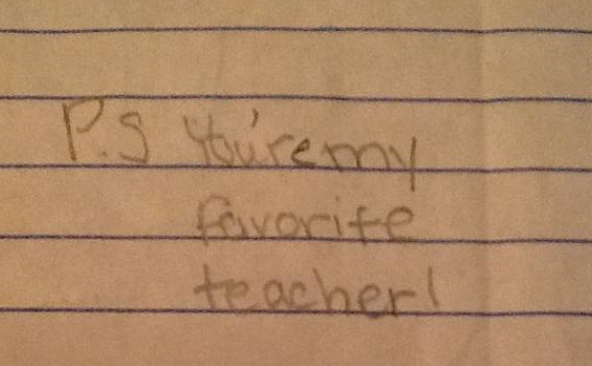 P.S You're my
favorite
teacher!